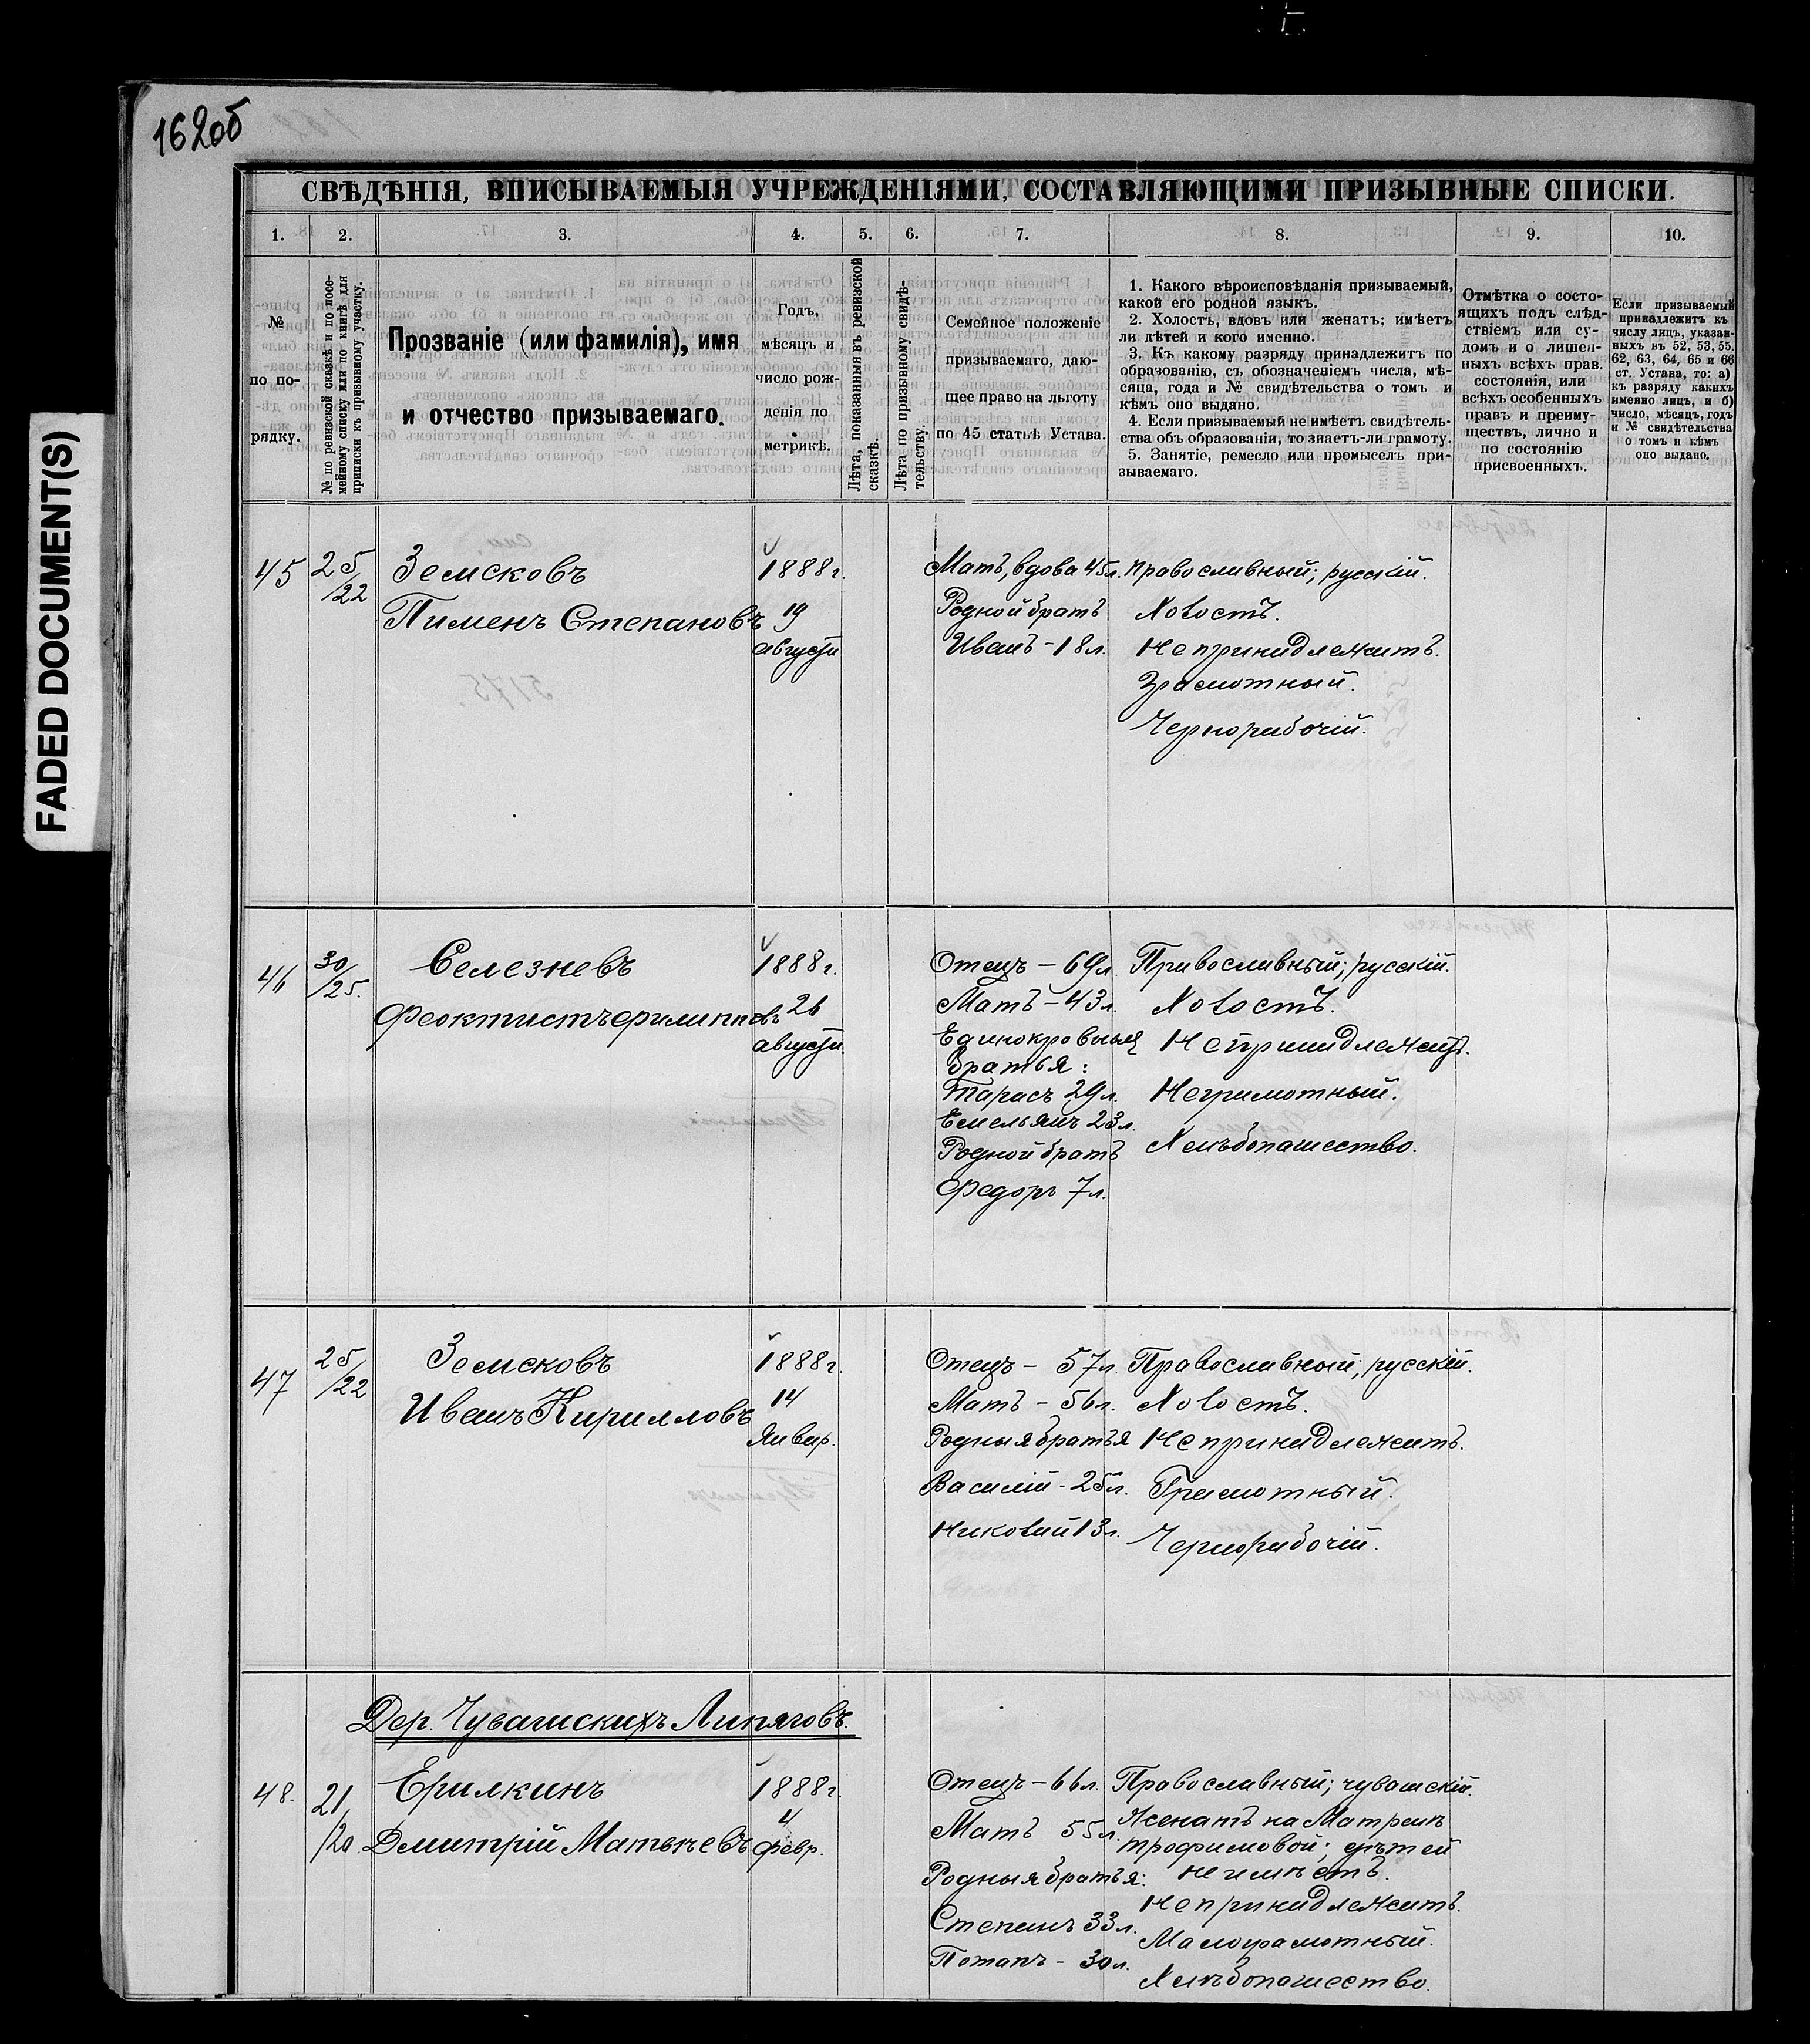 162об
FADED DOCUMENT(S)
СВѢДѢНІЯ, ВПИСЫВАЕМЫЯ УЧРЕЖДЕНІЯМИ, СОСТАВЛЯЮЩИМИ ПРИЗЫВНЫЕ СПИСКИ.
1. 2. 3. 4. 5. 6. 7. 8. 9. 10.
№
по по-
рядку.
№ по ревизской сказкѣ и по посе-
мейному списку или по книгѣ для
приписки къ призывному участку.
Прозваніе (или фамилія), имя
и отчество призываемаго.
Годъ,
мѣсяцъ и
число рож-
денія по
метрикѣ.
Лѣта, показанныя въ ревизской
сказкѣ.
Лѣта по призывному свидѣ-
тельству.
Семейное положеніе
призываемаго, даю-
щее право на льготу
по 45 статьѣ Устава.
1. Какого вѣроисповѣданія призываемый,
какой его родной языкъ.
2. Холостъ, вдовъ или женатъ; имѣетъ
ли дѣтей и кого именно.
3. Къ какому разряду принадлежитъ по
образованію, съ обозначеніемъ числа, мѣ-
сяца, года и № свидѣтельства о томъ и
кѣмъ оно выдано.
4. Если призываемый не имѣетъ свидѣтель-
ства объ образованіи, то знаетъ-ли грамоту.
5. Занятіе, ремесло или промыселъ при-
зываемаго.
Отмѣтка о состо-
ящихъ подъ слѣд-
ствіемъ или су-
домъ и о лишен-
ныхъ всѣхъ прав.
состоянія, или
всѣхъ особенныхъ
правъ и преиму-
ществъ, лично и
по состоянію
присвоенныхъ.
Если призываемый
принадлежитъ къ
числу лицъ, указан-
ныхъ въ 52, 53, 55.
62, 63, 64, 65 и 66
ст. Устава, то: а)
къ разряду какихъ
именно лицъ, и б)
число, мѣсяцъ, годъ
и № свидѣтельства
о томъ и кѣмъ
оно выдано.
45
25
/22
Земсковъ
Пименъ Степановъ
1888 г.
19
августа
Мать, вдова 45 л.
Родной братъ
Иванъ - 18 л.
Православный; русскій.
Холостъ.
Не принадлежитъ.
Грамотный.
Чернорабочій.
46
30
/25.
Селезневъ
Феоктистъ Филипповъ
1888 г.
26
августа
Отецъ - 69 л.
Мать - 43 л.
Единокровные
Братья:
Тарасъ 29 л.
Емельянъ 23 л.
Родной братъ
Федоръ 7 л.
Православный; русскій.
Холостъ.
Не принадлежитъ.
Неграмотный.
Хлѣбопашество.
47
25
/22
Земсковъ
Иванъ Кирилловъ
1888 г.
14
Январ.
Отецъ - 57 л.
Мать - 56 л.
Родныя братья
Василій - 25 л.
Николай 13 л.
Православный; русскій.
Холостъ.
Не принадлежитъ.
Грамотный.
Чернорабочій.
Дер. Чувашскихъ Липяговъ.
48.
21
/20
Ерилкинъ
Дмитрій Матвѣевъ
1888 г.
4
Февр.
Отецъ - 66 л.
Мать 55 л.
Родныя братья:
Степанъ 33 л.
Потапъ - 30 л.
Православный; чувашскій.
Женатъ на Матренѣ
Трофимовой; дѣтей
не имѣетъ.
Не принадлежитъ.
Малограмотный.
Хлѣбопашество.